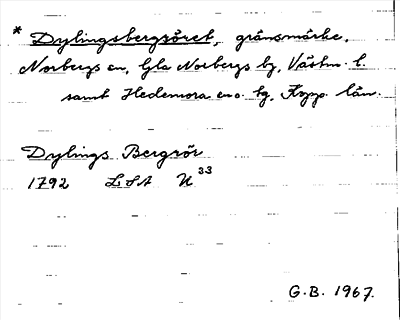 * Dylingsbergsröret, gränsmärke,
Norbergs sn, Gla Norbergs by, Västm. l.
samt Hedemora sn o. hg, Kopp. län.
Dylings Bergrör
1792 LSA U 33
G.B. 1967.